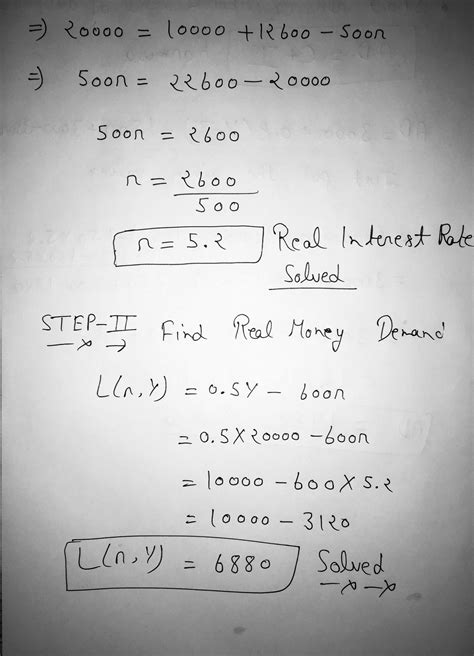 ⇒ 20000 = 10000 + 12600 − 500r
⇒ 500r = 22600 − 20000
500r = 2600
r = 2600
500
r = 5.2 Real Interest Rate
Solved
STEP-II Find Real Money Demand
L(r,Y) = 0.5Y − 600r
= 0.5X20000 − 600r
= 10000 − 600 X 5.2
= 10000 − 3120
L(r,Y) = 6880 Solved